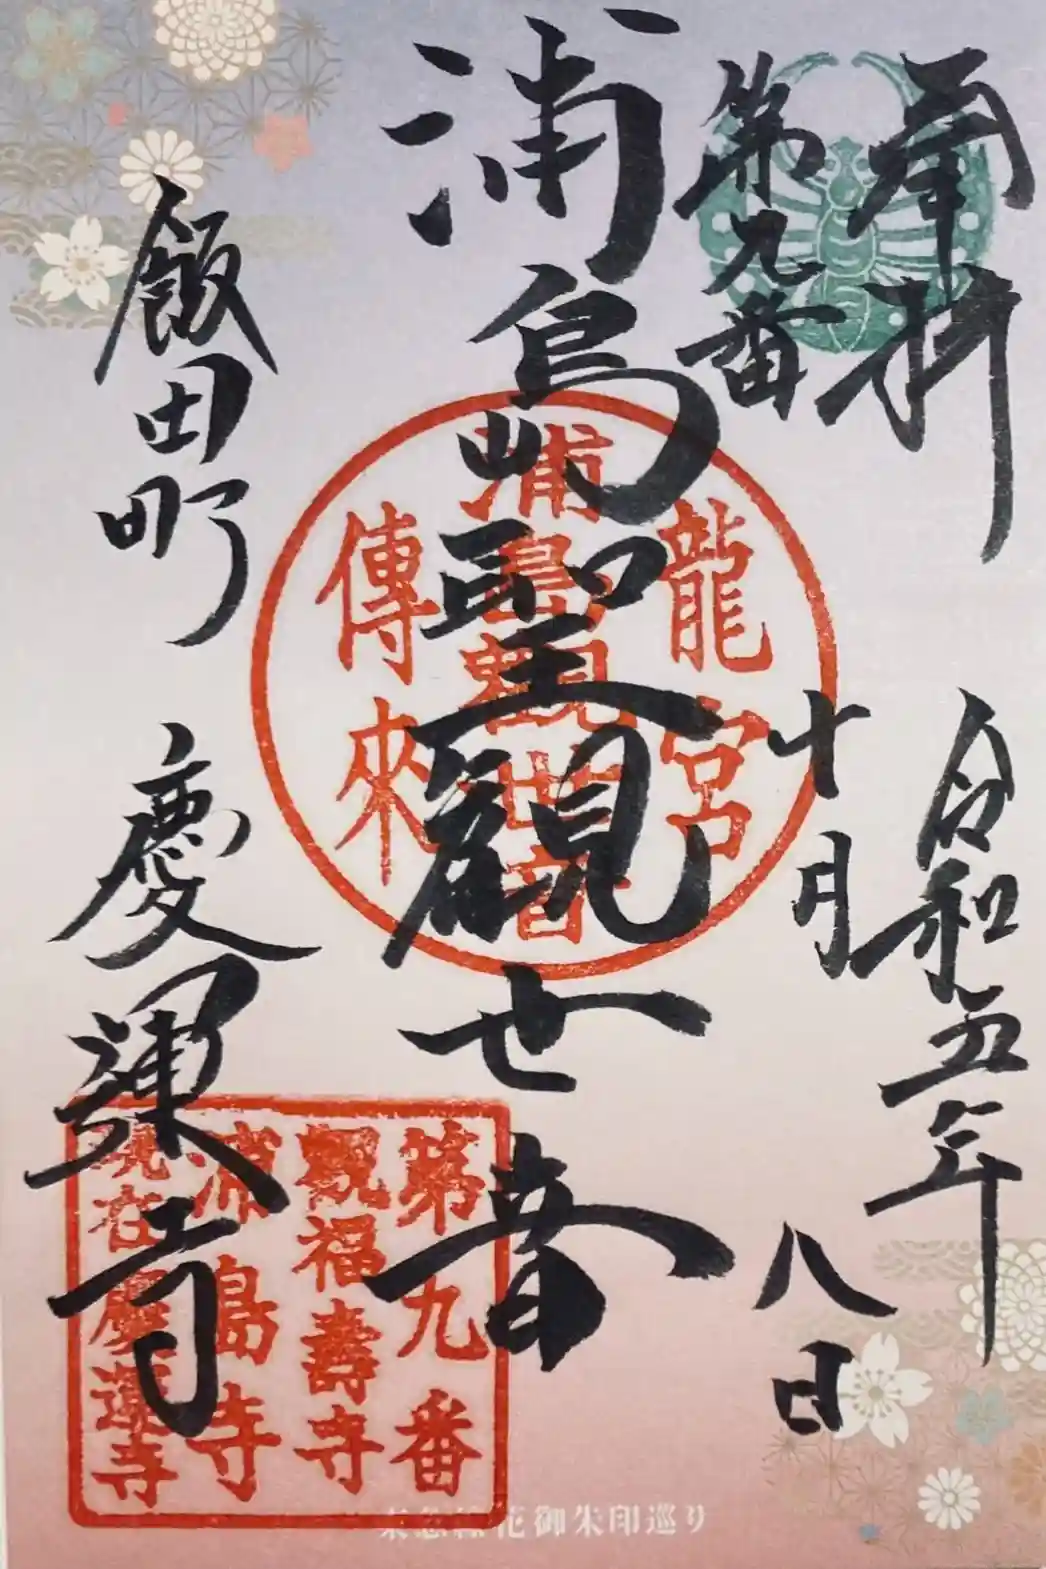 奉拝
第九番
令和五年
十月
八日
浦島聖観世音
飯田町
慶運寺
龍宮
浦島観世音
傳來
第九番
觀福壽寺
浦島寺
現在慶運寺
花御朱印巡り